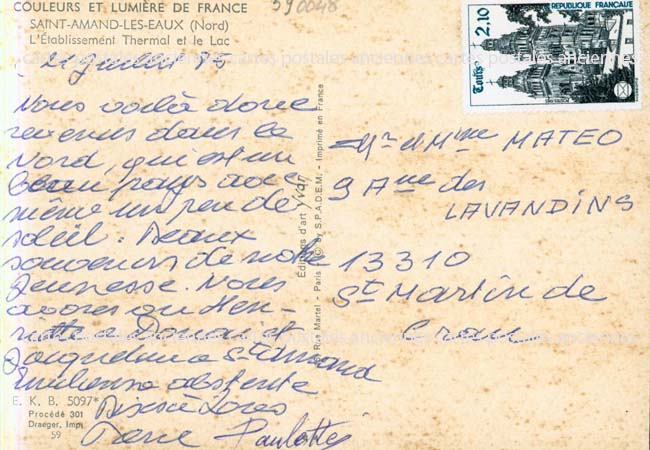 COULEURS ET LUMIÈRE DE FRANCE
SAINT-AMAND-LES-EAUX (Nord)
L'Établissement Thermal et le Lac
590048
21 juillet 85
Nous voilà donc
revenus dans le
Nord, qui est un
beau pays avec
même un peu de
soleil. Beaux
souvenirs de notre
jeunesse. Nous
avons vu Hen-
riette a Douai et
Jacqueline a St Amand
Emilienne absente
Bises à tous
Paulette
E. K. B. 5097*
Procédé 301
Draeger, Imp.
59
Éditions d'art Yvon
Rue Martel - Paris by S.P.A.D.E.M. - Imprimé en France
RÉPUBLIQUE FRANÇAISE
2,10
Tours
POSTES 1985
Mr et Mme MATEO
9 Aue des
LAVANDINS
13310
St Martin de
Crau
cartes postales anciennes